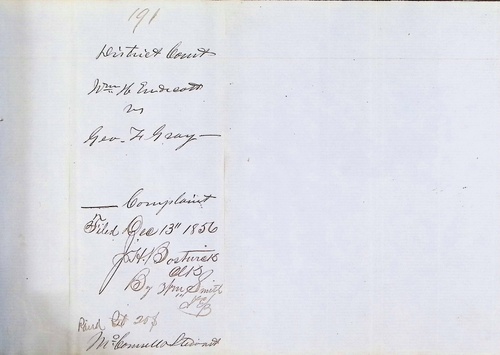 191
District Court
Wm. H Endicott
vs
Geo. F Gray
Complaint
Filed Dec 13" 1856
J.H. Bostwick
Clk
By Wm Smith
Paid 20$
McConnell & Stewart